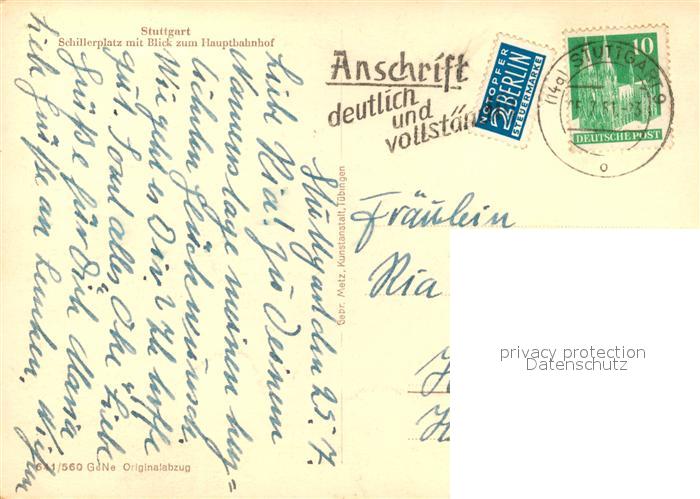 Stuttgart
Schillerplatz mit Blick zum Hauptbahnhof
Anschrift
deutlich
und
vollstän
NOTOPFER
2 BERLIN
STEUERMARKE
10
DEUTSCHE POST
(14a) STUTTGART 9
Stuttgart den 25. 7.
Liebe Ria! Zu Deinem
Namenstage meinen herz=
lichsten Glückwunsch
Wie geht es Dir? Ich hoffe
gut. Sonst alles Oke. Liebe
Grüße für Dich Mama
Grüße an
Fräulein
Ria
Gebr. Metz, Kunstanstalt, Tübingen
privacy protection
Datenschutz
641/560 GeNe Originalabzug